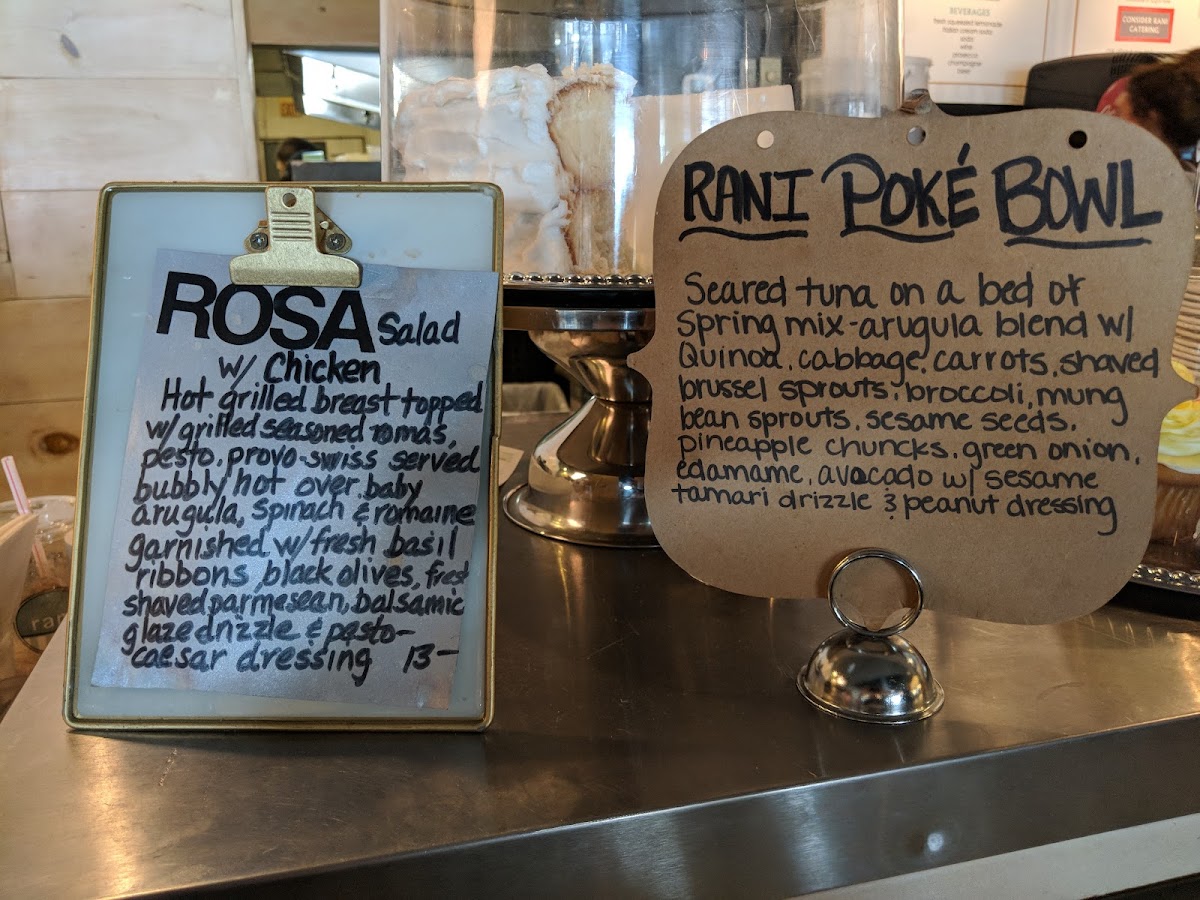 ROSA Salad
w/ Chicken
Hot grilled breast topped
w/grilled seasoned romas,
pesto, provo-swiss served
bubbly hot over baby
arugula, spinach & romaine
garnished w/fresh basil
ribbons, black olives, fresh
shaved parmesean, balsamic
glaze drizzle & pesto-
caesar dressing 13—
RANI POKÉ BOWL
Seared tuna on a bed of
spring mix-arugula blend w/
Quinoa, cabbage, carrots, shaved
brussel sprouts, broccoli, mung
bean sprouts, sesame seeds,
pineapple chuncks, green onion,
edamame, avocado w/ sesame
tamari drizzle & peanut dressing
BEVERAGES
fresh squeezed lemonade
italian cream soda
soda
wine
prosecco
champagne
beer
CONSIDER RANI
CATERING